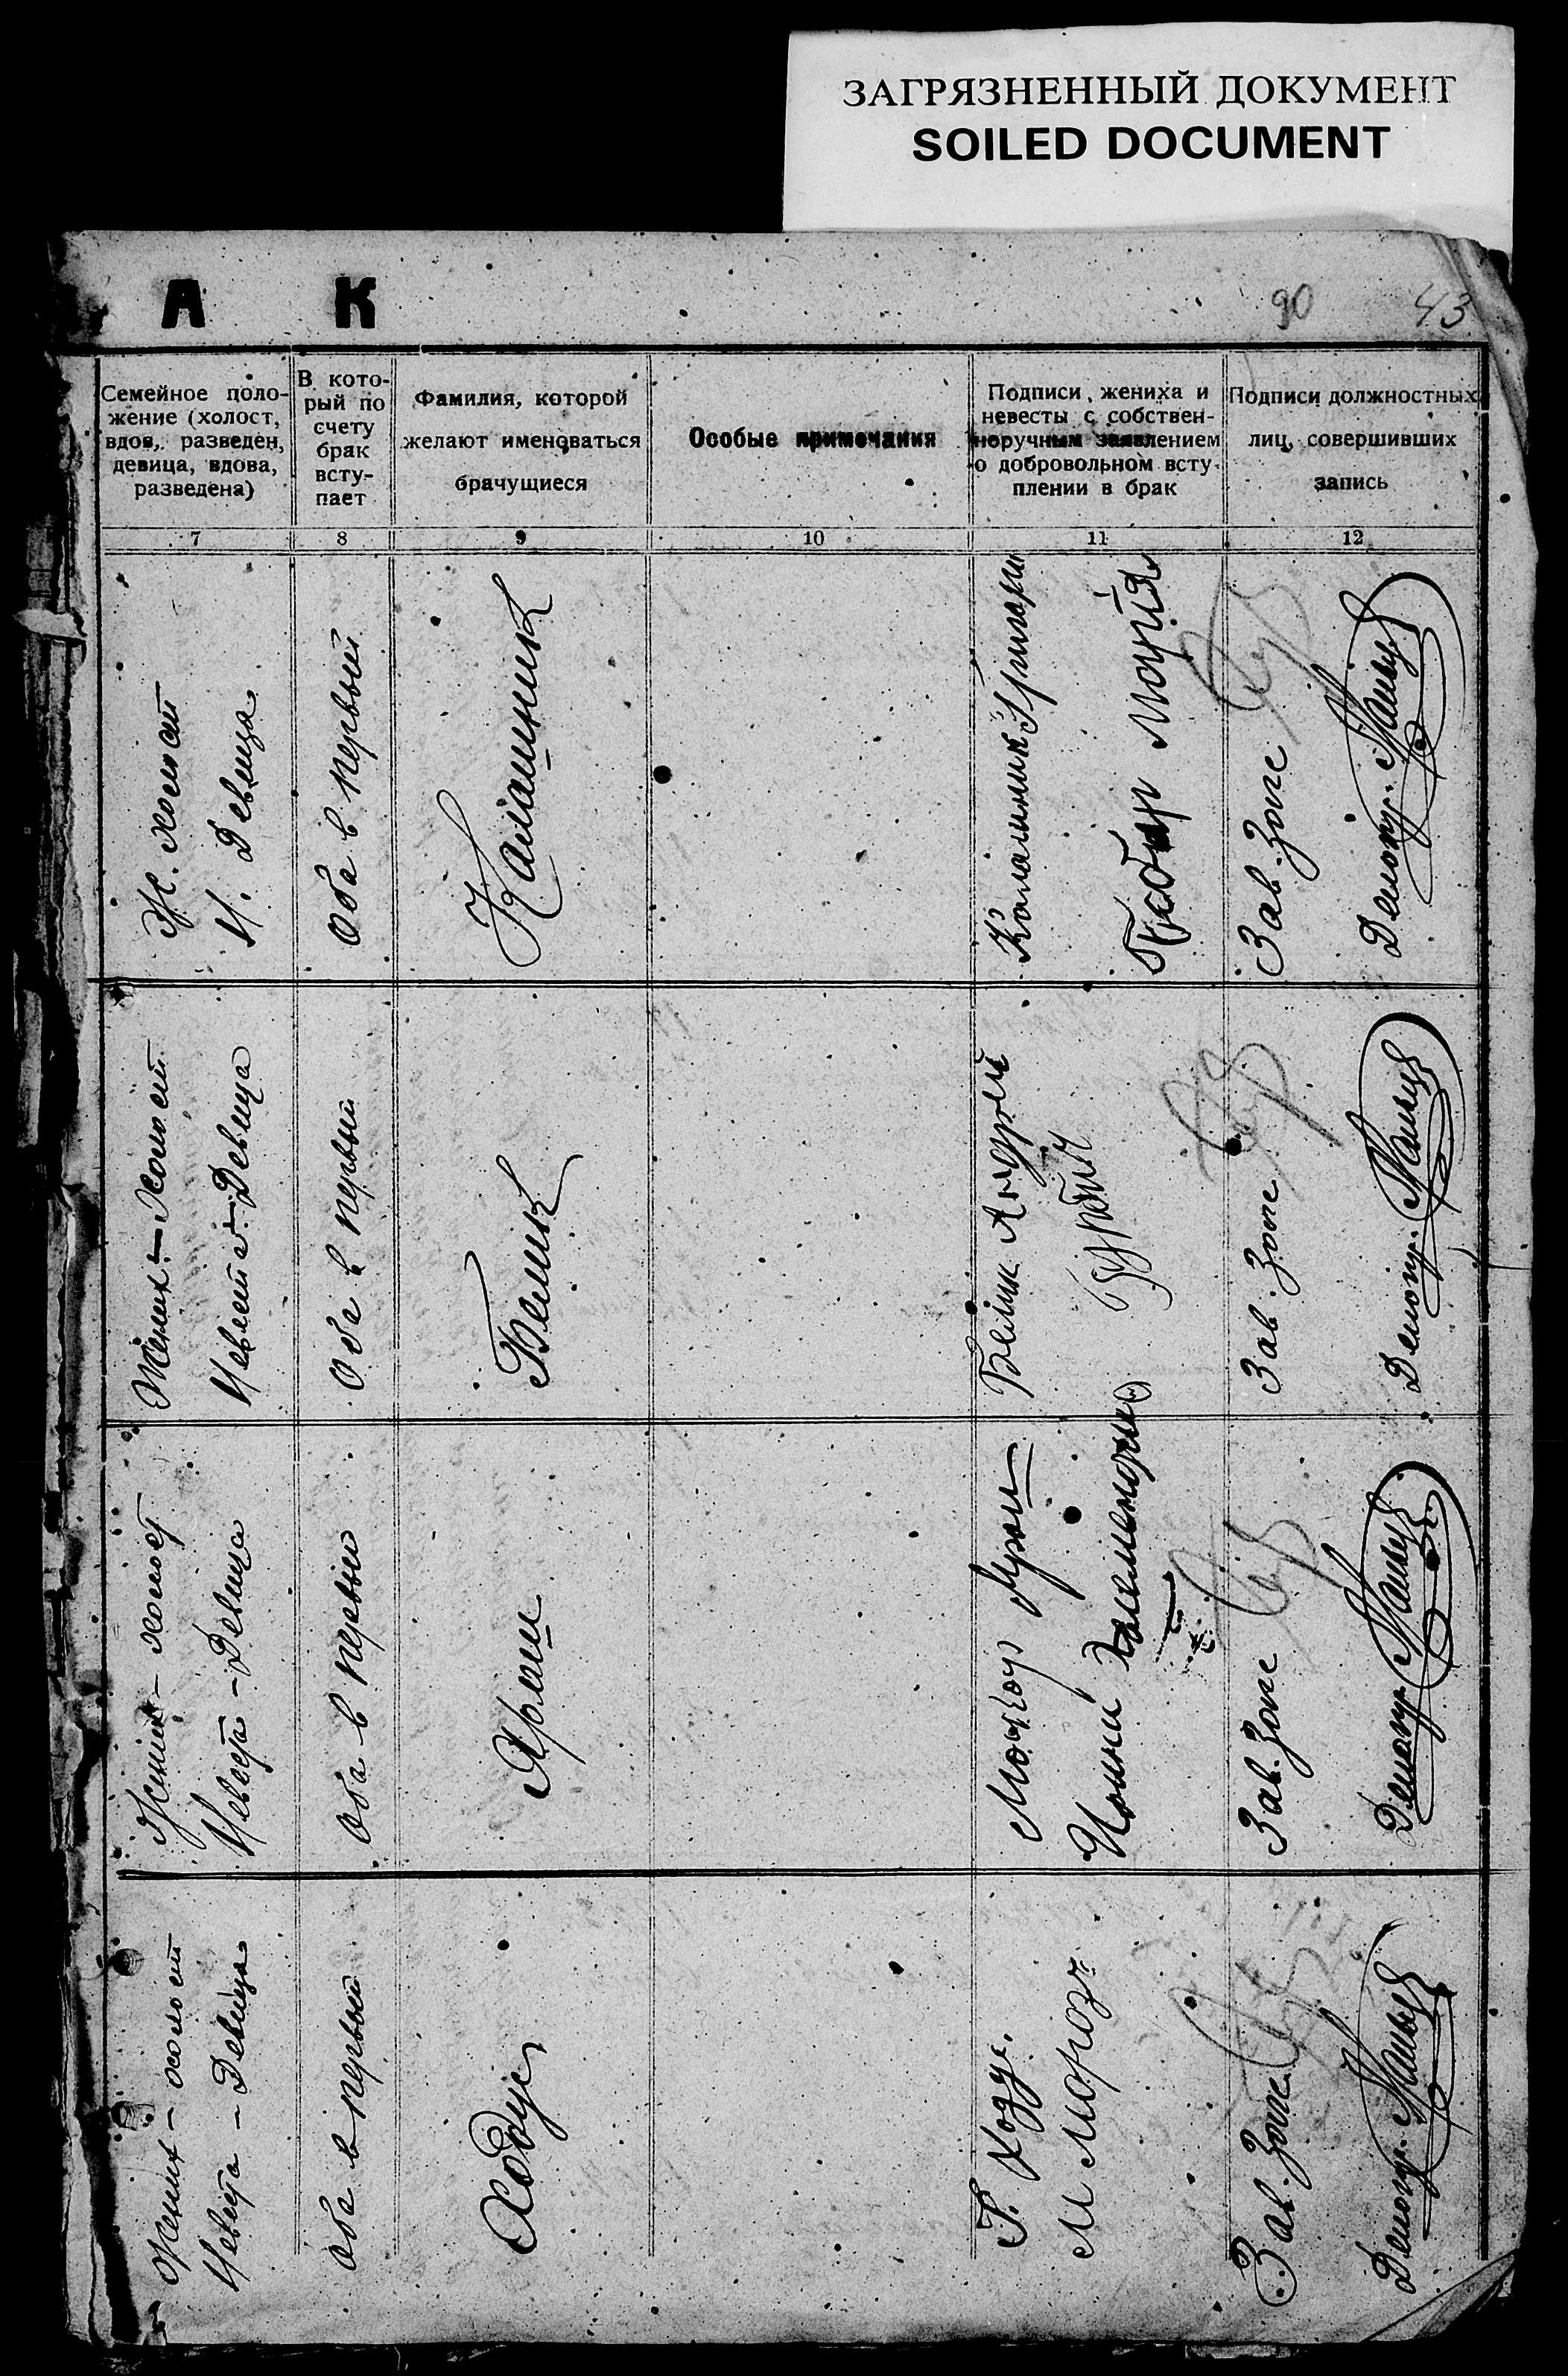 ЗАГРЯЗНЕННЫЙ ДОКУМЕНТ
SOILED DOCUMENT
А К
90 43
Семейное поло-
жение (холост,
вдов, разведен,
девица, вдова,
разведена)
В кото-
рый по
счету
брак
всту-
пает
Фамилия, которой
желают именоваться
брачущиеся
Особые примечания
Подписи жениха и
невесты с собствен-
норучным заявлением
о добровольном всту-
плении в брак
Подписи должностных
лиц, совершивших
запись
7 8 9 10 11 12
Ж. холост
Н. Девица
Оба в первый
Калашник
Калашник Григори
Марія
Зав. Загс
Делопр.
Жених — Холост
Невеста — Девица
Оба в первый
Белик
Белик Андрей
Зав. Загс
Делопр.
Жених — холост
Невеста — Девица
Оба в первый
Зав. Загс
Делопр.
Жених — холост
Невеста — Девица
Оба в первый
Ходус
Г. Ходус.
М Мороз
Зав. Загс
Делопр.